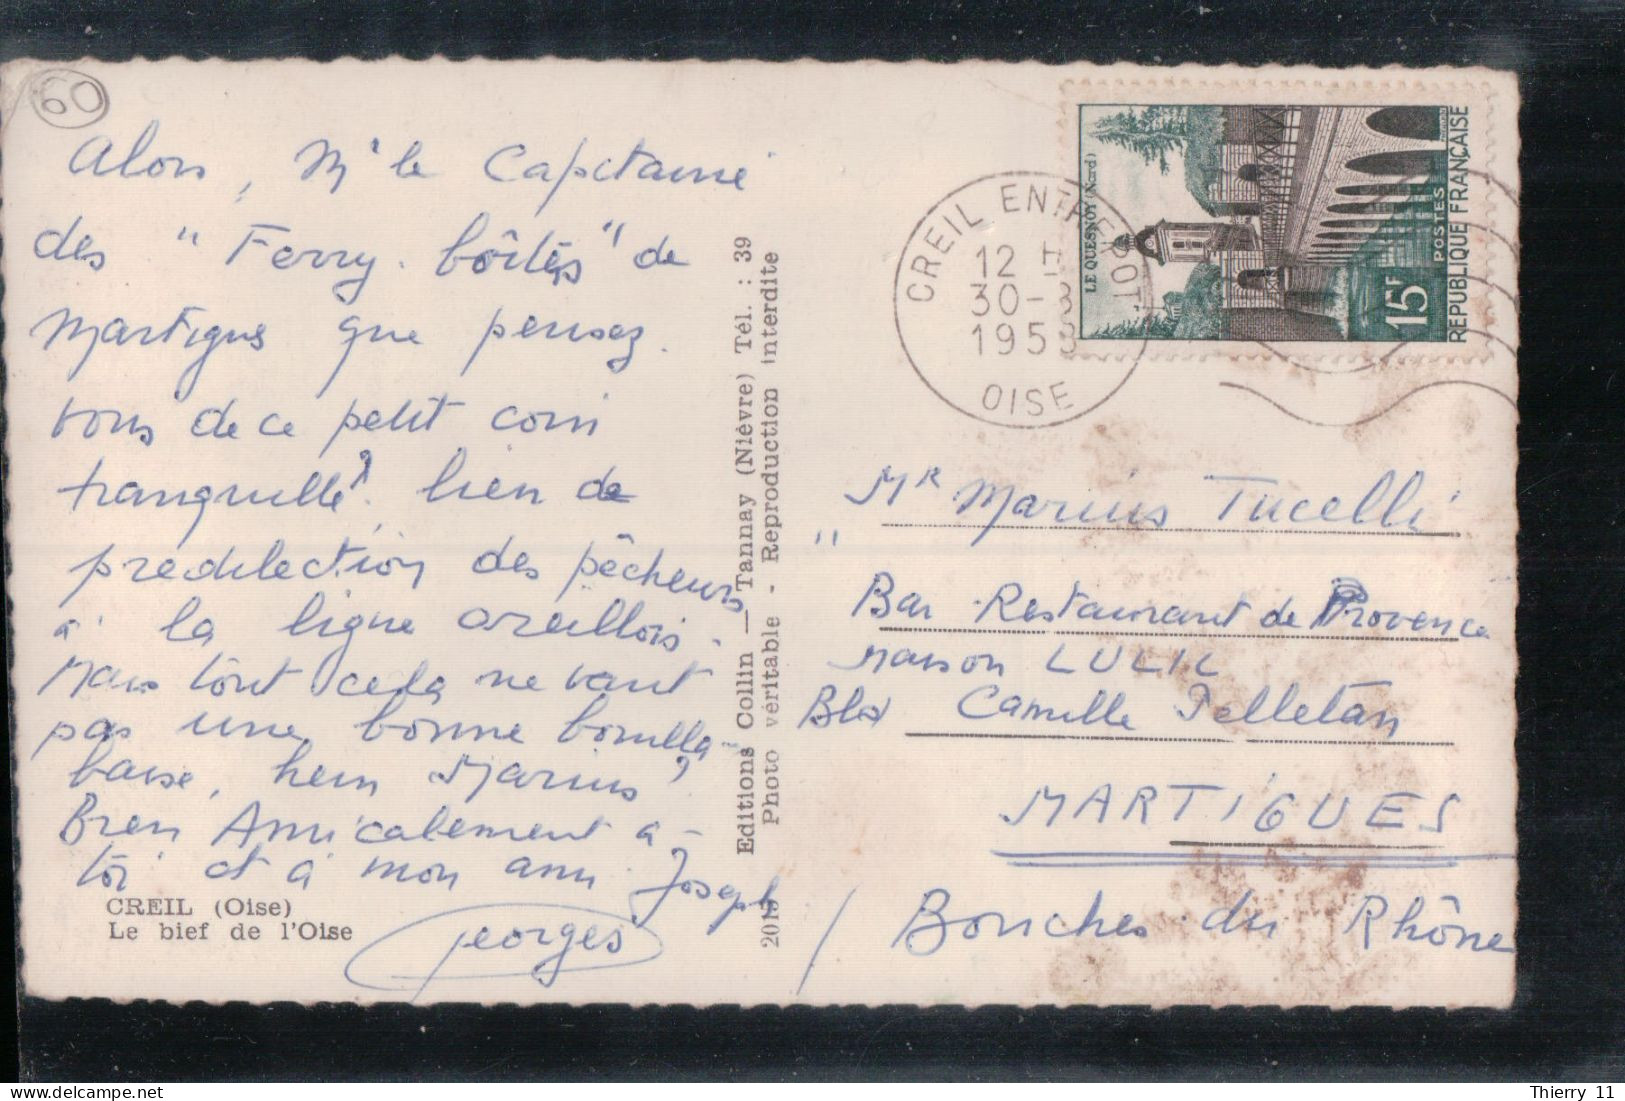 60
Alors, Mr le Capitaine
des "Ferry-boîtes" de
Martigues que pensez
vous de ce petit coin
tranquille? lieu de
predilection des pêcheurs
à la ligne creillois.
Mais tout cela ne vaut
pas une bonne bouilla-
baise, hein Marius?
Bien Amicalement à
toi et à mon ami Joseph
Georges
CREIL (Oise)
Le bief de l'Oise
Editions Collin — Tannay (Nièvre) Tél. : 39
Photo véritable - Reproduction interdite
CREIL ENTREPOT
12 H
30-8
195
OISE
LE QUESNOY (Nord)
15F
POSTES
REPUBLIQUE FRANÇAISE
Mr Marius Tucelli
"Bar Restaurant de Provence
Maison LULU
Bld Camille Pelletan
MARTIGUES
Bouches du Rhône
Thierry 11